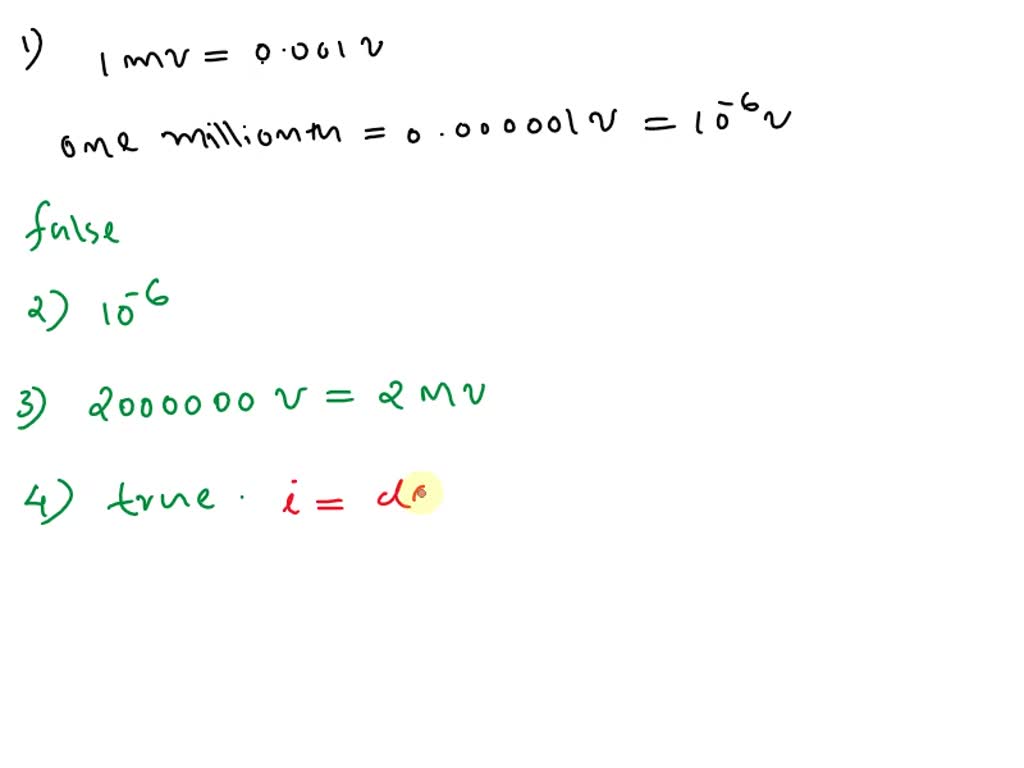 1) 1 mv = 0.001 v
one millionth = 0.000001 v = 10⁻⁶ v
false
2) 10⁻⁶
3) 2000000 v = 2 MV
4) true. i =